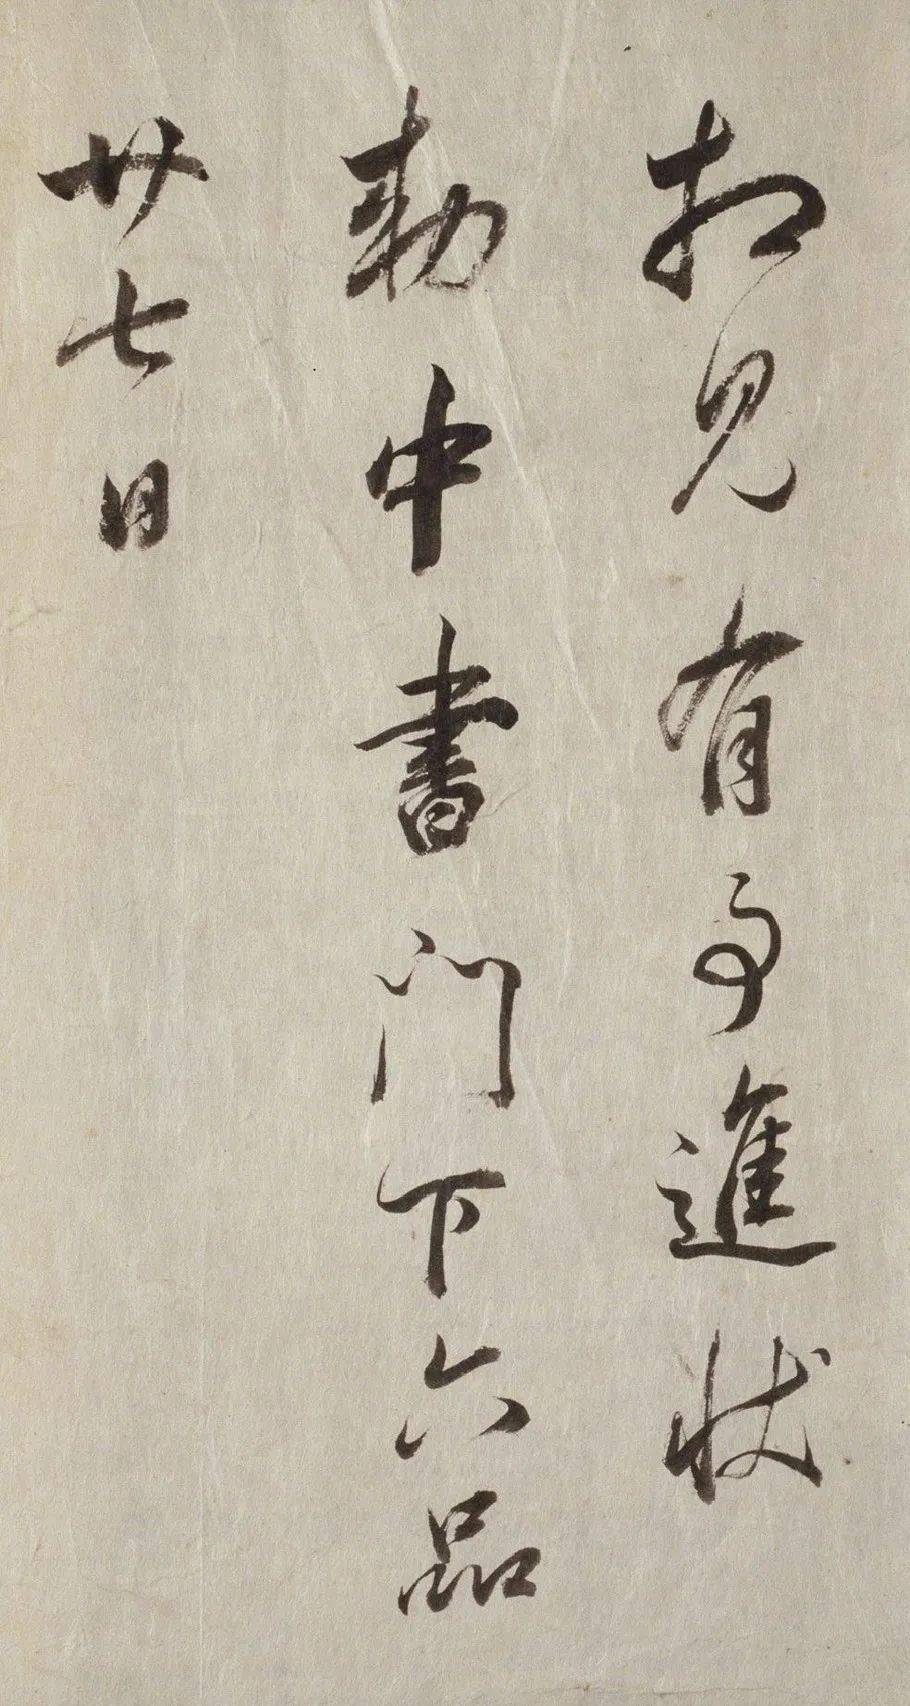 相見有事進狀
勅中書門下六品
廿七日